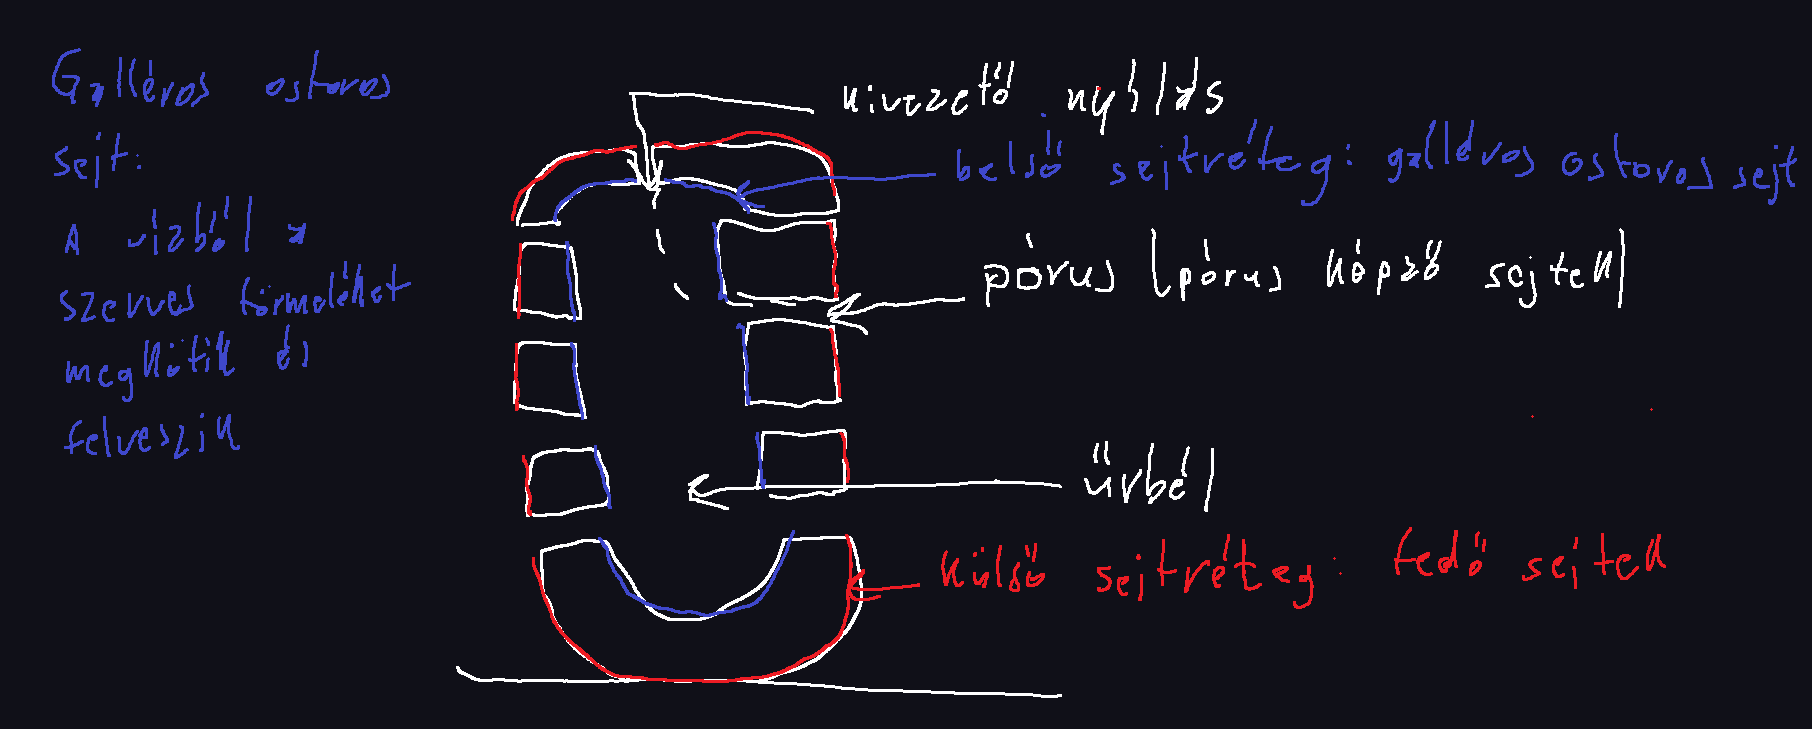 Galléros ostoros
sejt:
A vízből a
szerves törmeléket
megkötik és
felveszik
kivezető nyílás
belső sejtréteg: galléros ostoros sejt
pórus (pórus képző sejtek)
űrbél
külső sejtréteg: fedő sejtek